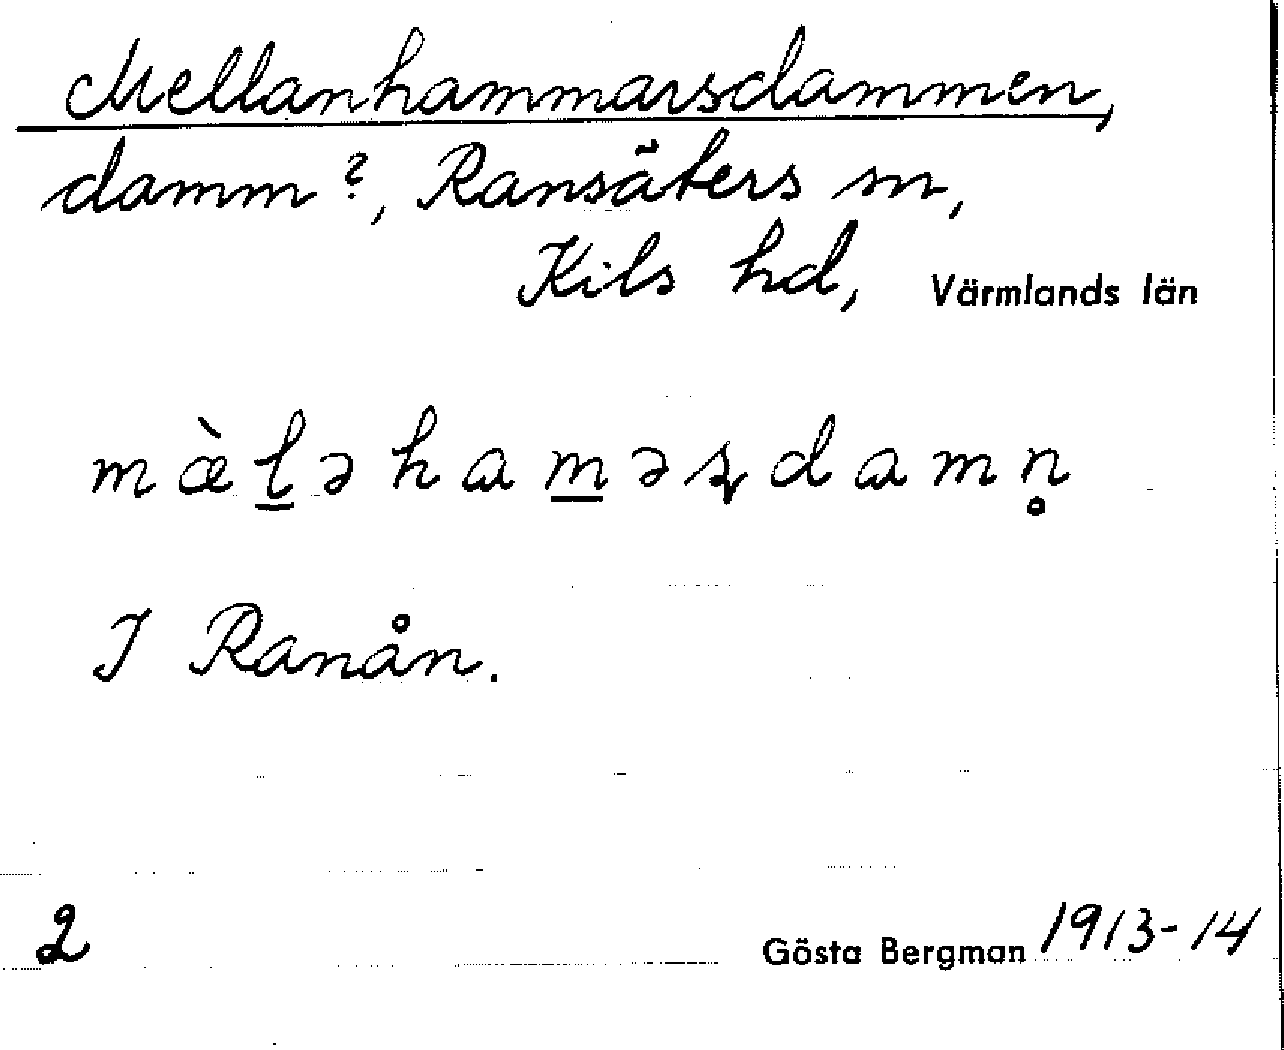 Mellanhammarsdammen,
damm?, Ransäters sn,
Kils hd, Värmlands län
mæ̀l̠əham̠əʂdamn̥
I Ranån.
2 Gösta Bergman 1913-14